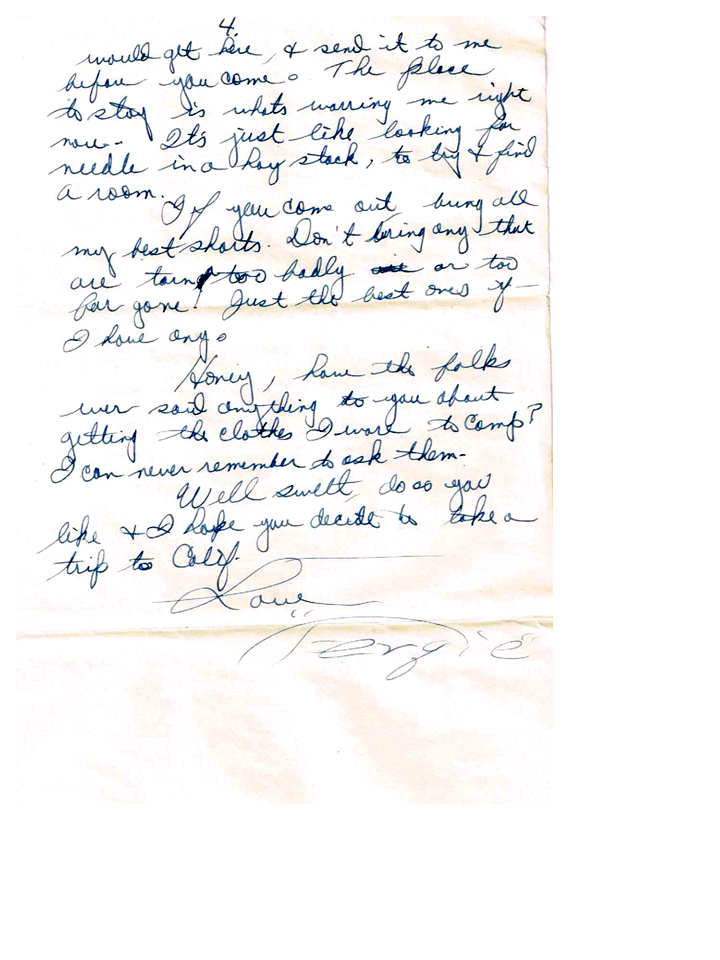 4.
would get here, & send it to me
before you come. The place
to stay is whats worring me right
now - It's just like looking for
needle in a hay stack, to try & find
a room.
If you come out, bring all
my best shorts. Don't bring any that
are torn too badly or too
far gone! Just the best ones if -
I have any.
Honey, have the folks
ever said anything to you about
getting the clothes I wore to camp?
I can never remember to ask them -
Well swell, do as you
like & I hope you decide to take a
trip to Calif.
Love
"Fergie"